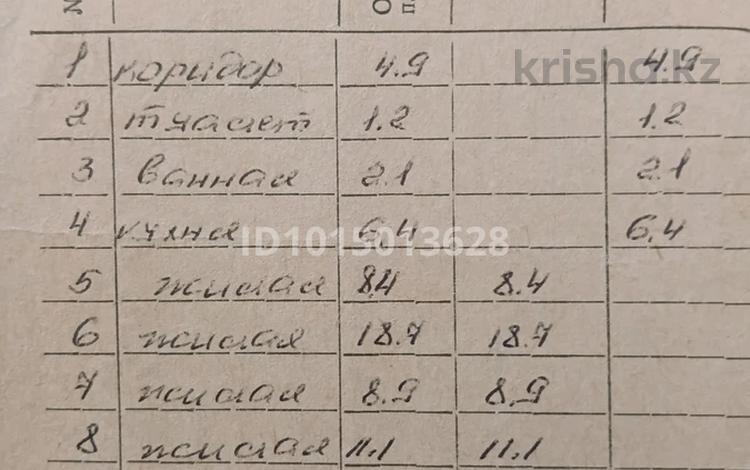 1 коридор 4.9 4.9
krisha.kz
2 туалет 1.2 1.2
3 ванная 2.1 2.1
4 кухня 6,4 6,4
ID1015013628
5 жилая 8,4 8.4
6 жилая 18.7 18.7
7 жилая 8.9 8.9
8 жилая 11.1 11.1